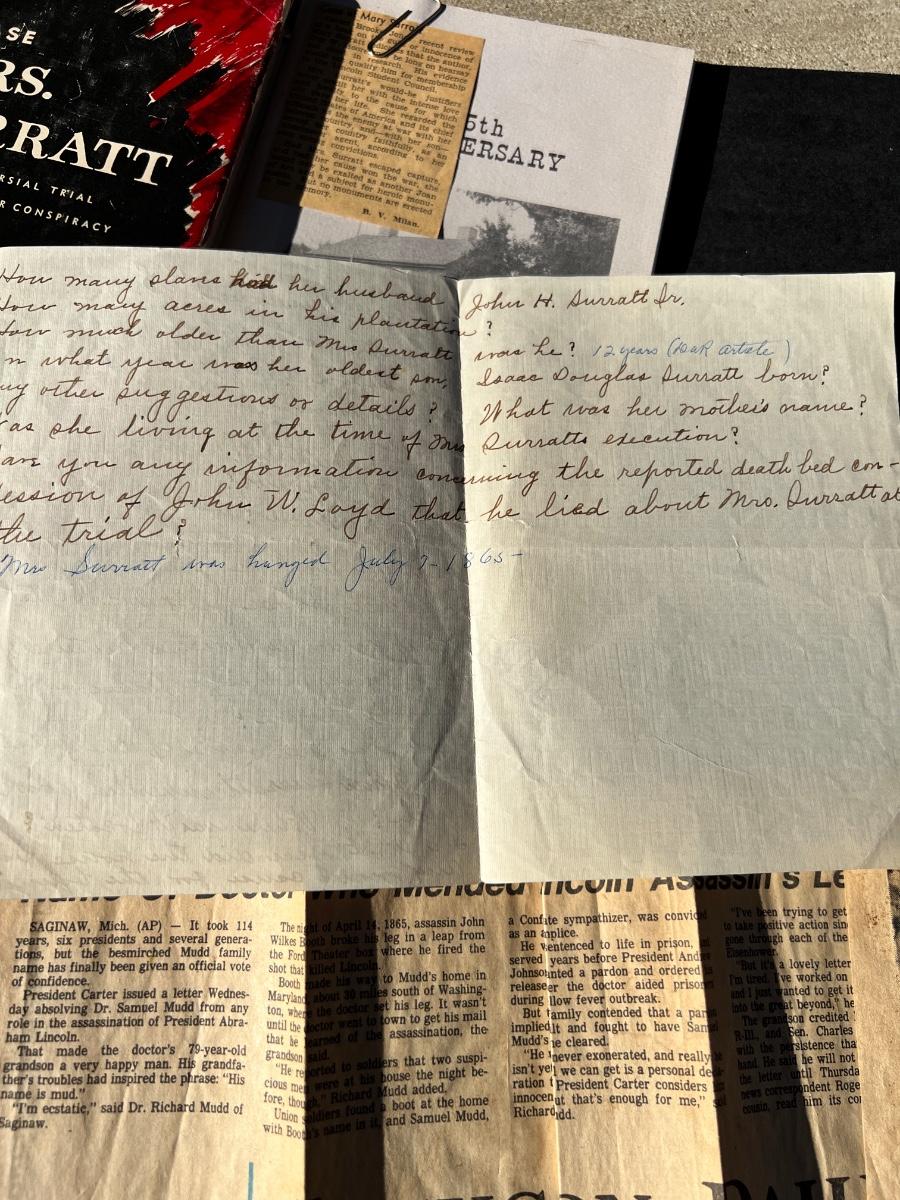 SE
RS.
RRATT
RSIAL TRIAL
R CONSPIRACY
Mary Surra
recent review
or innocence of
that the author,
be long on hearsay
research. His evidence
qualify him for membership
coln Student Council.
urratt's would-be justifiers
it her with the intense love
to the cause for which
her life. She regarded the
ates of America and its chief
the enemy at war with her
untry, and—with her son—
country faithfully, as an
agent, according to her
convictions.
Surratt escaped capture,
her cause won the war, she
be exalted as another Joan
d a subject for heroic monu-
ut no monuments are erected
mory.
B. V. Milan.
5th
ERSARY
How many slaves had her husband John H. Surratt Jr.
How many acres in his plantation?
How much older than Mrs Surratt was he? 12 years (DAR article)
n what year was her oldest son, Isaac Douglas Surratt born?
ny other suggestions or details? What was her mother's name?
Was she living at the time of Mrs Surratts execution?
ave you any information concerning the reported death bed con-
fession of John W. Loyd that he lied about Mrs. Surratt at
the trial?
Mrs Surratt was hanged July 7-1865-
Name of Doctor Who Mended incoln Assassin's Le
SAGINAW, Mich. (AP) — It took 114
years, six presidents and several genera-
tions, but the besmirched Mudd family
name has finally been given an official vote
of confidence.
President Carter issued a letter Wednes-
day absolving Dr. Samuel Mudd from any
role in the assassination of President Abra-
ham Lincoln.
That made the doctor's 79-year-old
grandson a very happy man. His grandfa-
ther's troubles had inspired the phrase: "His
name is mud."
"I'm ecstatic," said Dr. Richard Mudd of
Saginaw.
The night of April 14, 1865, assassin John
Wilkes Booth broke his leg in a leap from
the Ford Theater box where he fired the
shot that killed Lincoln.
Booth made his way to Mudd's home in
Maryland, about 30 miles south of Washing-
ton, where the doctor set his leg. It wasn't
until the doctor went to town to get his mail
that he learned of the assassination, the
grandson said.
"He reported to soldiers that two suspi-
cious men were at his house the night be-
fore, though," Richard Mudd added.
Union soldiers found a boot at the home
with Booth's name in it, and Samuel Mudd,
a Confte sympathizer, was convic
as an aplice.
He ventenced to life in prison,
served years before President Andr
Johnsonted a pardon and ordered
release the doctor aided prison
during llow fever outbreak.
But family contended that a par
implied it and fought to have Sam
Mudd's e cleared.
"He never exonerated, and really
isn't ye we can get a personal de
ration t President Carter considers
innocen ut that's enough for me,"
Richard dd.
"I've been trying to get
to take positive action sin
gone through each of the
Eisenhower.
"But it's a lovely letter
I'm tired. I've worked on
and I just wanted to get it
into the great beyond," he
The grandson credited
R-Ill., and Sen. Charles
with the persistence tha
hand. He said he will not
the letter until Thursda
news correspondent Roge
cousin, read him its con